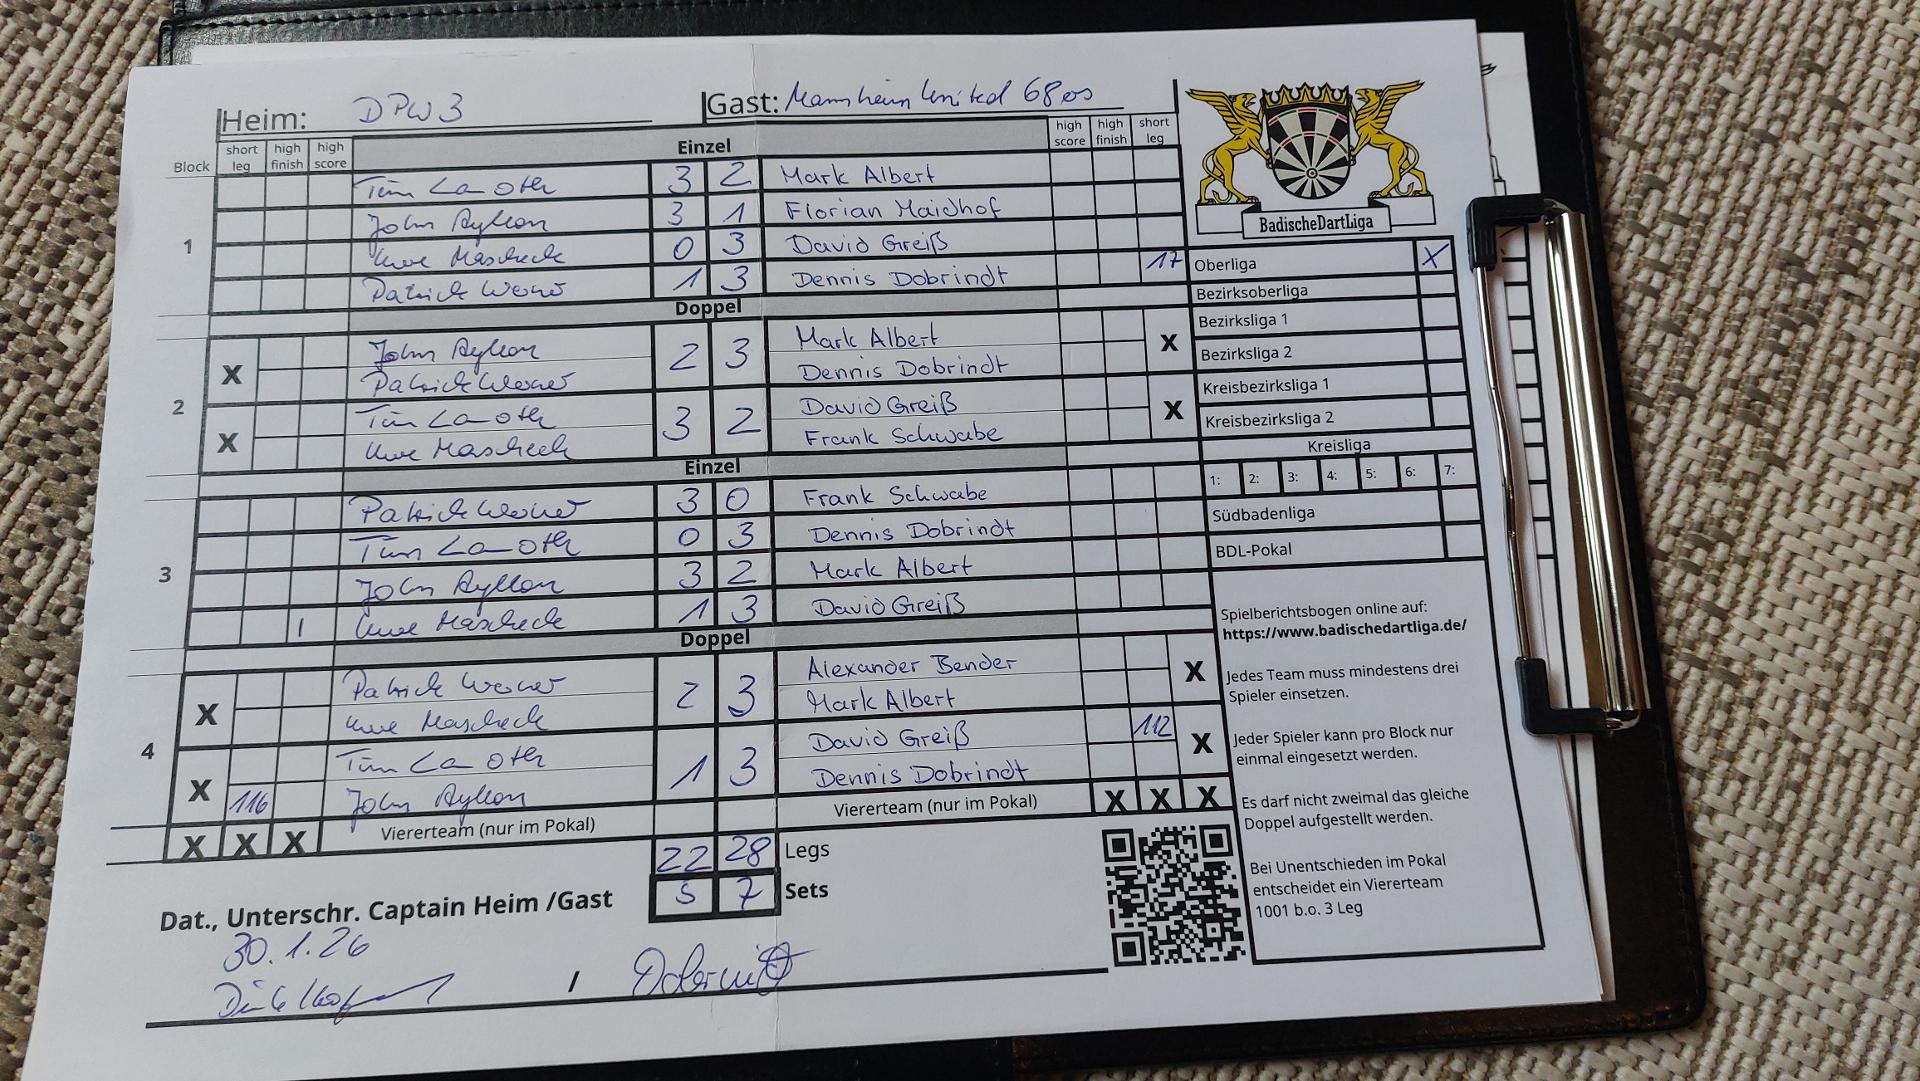 Heim: DPW 3 Gast: Mannheim United 68os
Block short leg high finish high score Einzel high score high finish short leg
1
Tim La Oth 3 2 Mark Albert
John 3 1 Florian Maidhof
Uwe Mascheck 0 3 David Greiß
Patrick Werner 1 3 Dennis Dobrindt 17
Doppel
2
X John 2 3 Mark Albert X
Patrick Werner Dennis Dobrindt
X Tim La Oth 3 2 David Greiß X
Uwe Mascheck Frank Schwabe
Einzel
3
Patrick Werner 3 0 Frank Schwabe
Tim La Oth 0 3 Dennis Dobrindt
John 3 2 Mark Albert
1 Uwe Mascheck 1 3 David Greiß
Doppel
4
X Patrick Werner 2 3 Alexander Bender X
Uwe Mascheck Mark Albert
X Tim La Oth 1 3 David Greiß 112 X
116 John Dennis Dobrindt
X X X Viererteam (nur im Pokal) Viererteam (nur im Pokal) X X X
22 28 Legs
5 7 Sets
Dat., Unterschr. Captain Heim /Gast
30.1.26
/
BadischeDartLiga
Oberliga X
Bezirksoberliga
Bezirksliga 1
Bezirksliga 2
Kreisbezirksliga 1
Kreisbezirksliga 2
Kreisliga
1: 2: 3: 4: 5: 6: 7:
Südbadenliga
BDL-Pokal
Spielberichtsbogen online auf:
https://www.badischedartliga.de/
Jedes Team muss mindestens drei
Spieler einsetzen.
Jeder Spieler kann pro Block nur
einmal eingesetzt werden.
Es darf nicht zweimal das gleiche
Doppel aufgestellt werden.
Bei Unentschieden im Pokal
entscheidet ein Viererteam
1001 b.o. 3 Leg